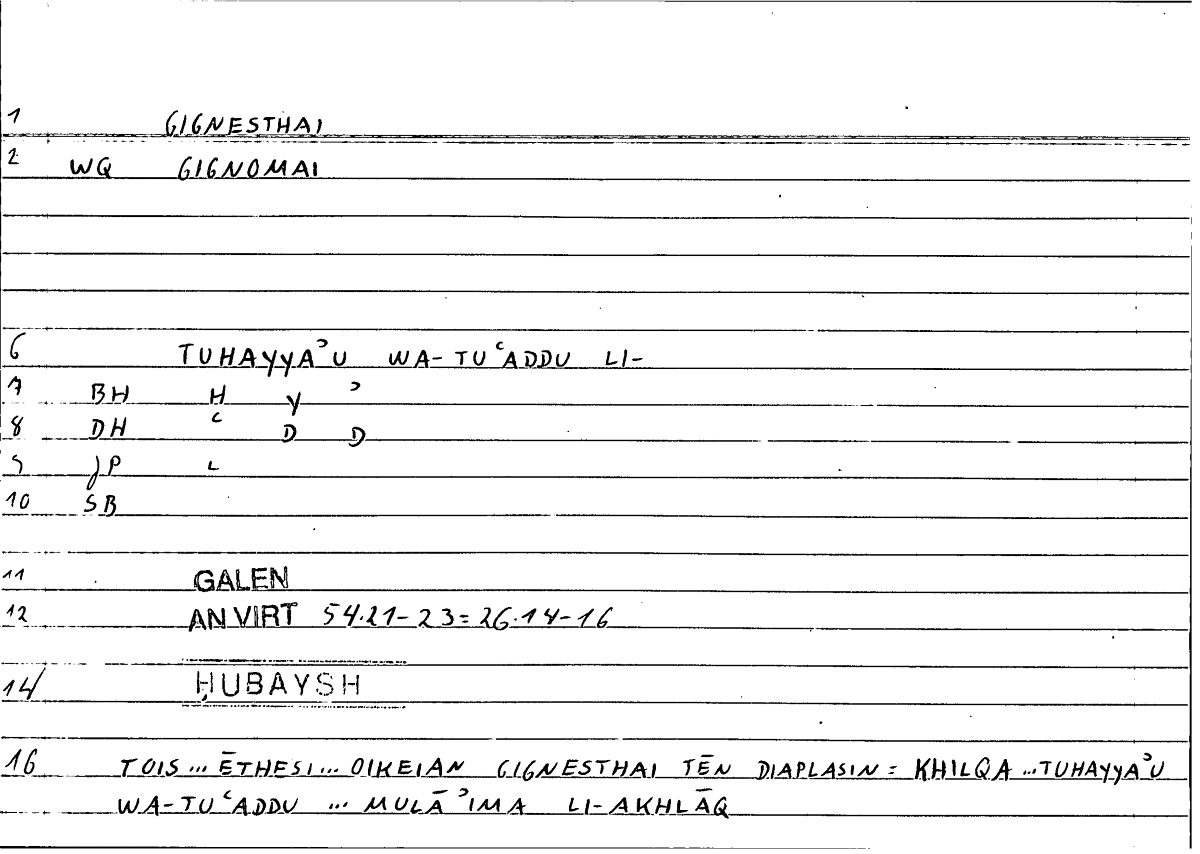 1 GIGNESTHAI
2 WQ GIGNOMAI
6 TUHAYYAʾU WA-TUʿADDU LI-
7 BH H Y ʾ
8 DH ʿ D D
9 JP L
10 SB
11 GALEN
12 AN VIRT 54.21-23=26.14-16
14/ ḤUBAYSH
16 TOIS ... ĒTHESI ... OIKEIAN GIGNESTHAI TĒN DIAPLASIN = KHILQA ... TUHAYYAʾU
WA-TUʿADDU ... MULĀʾIMA LI-AKHLĀQ